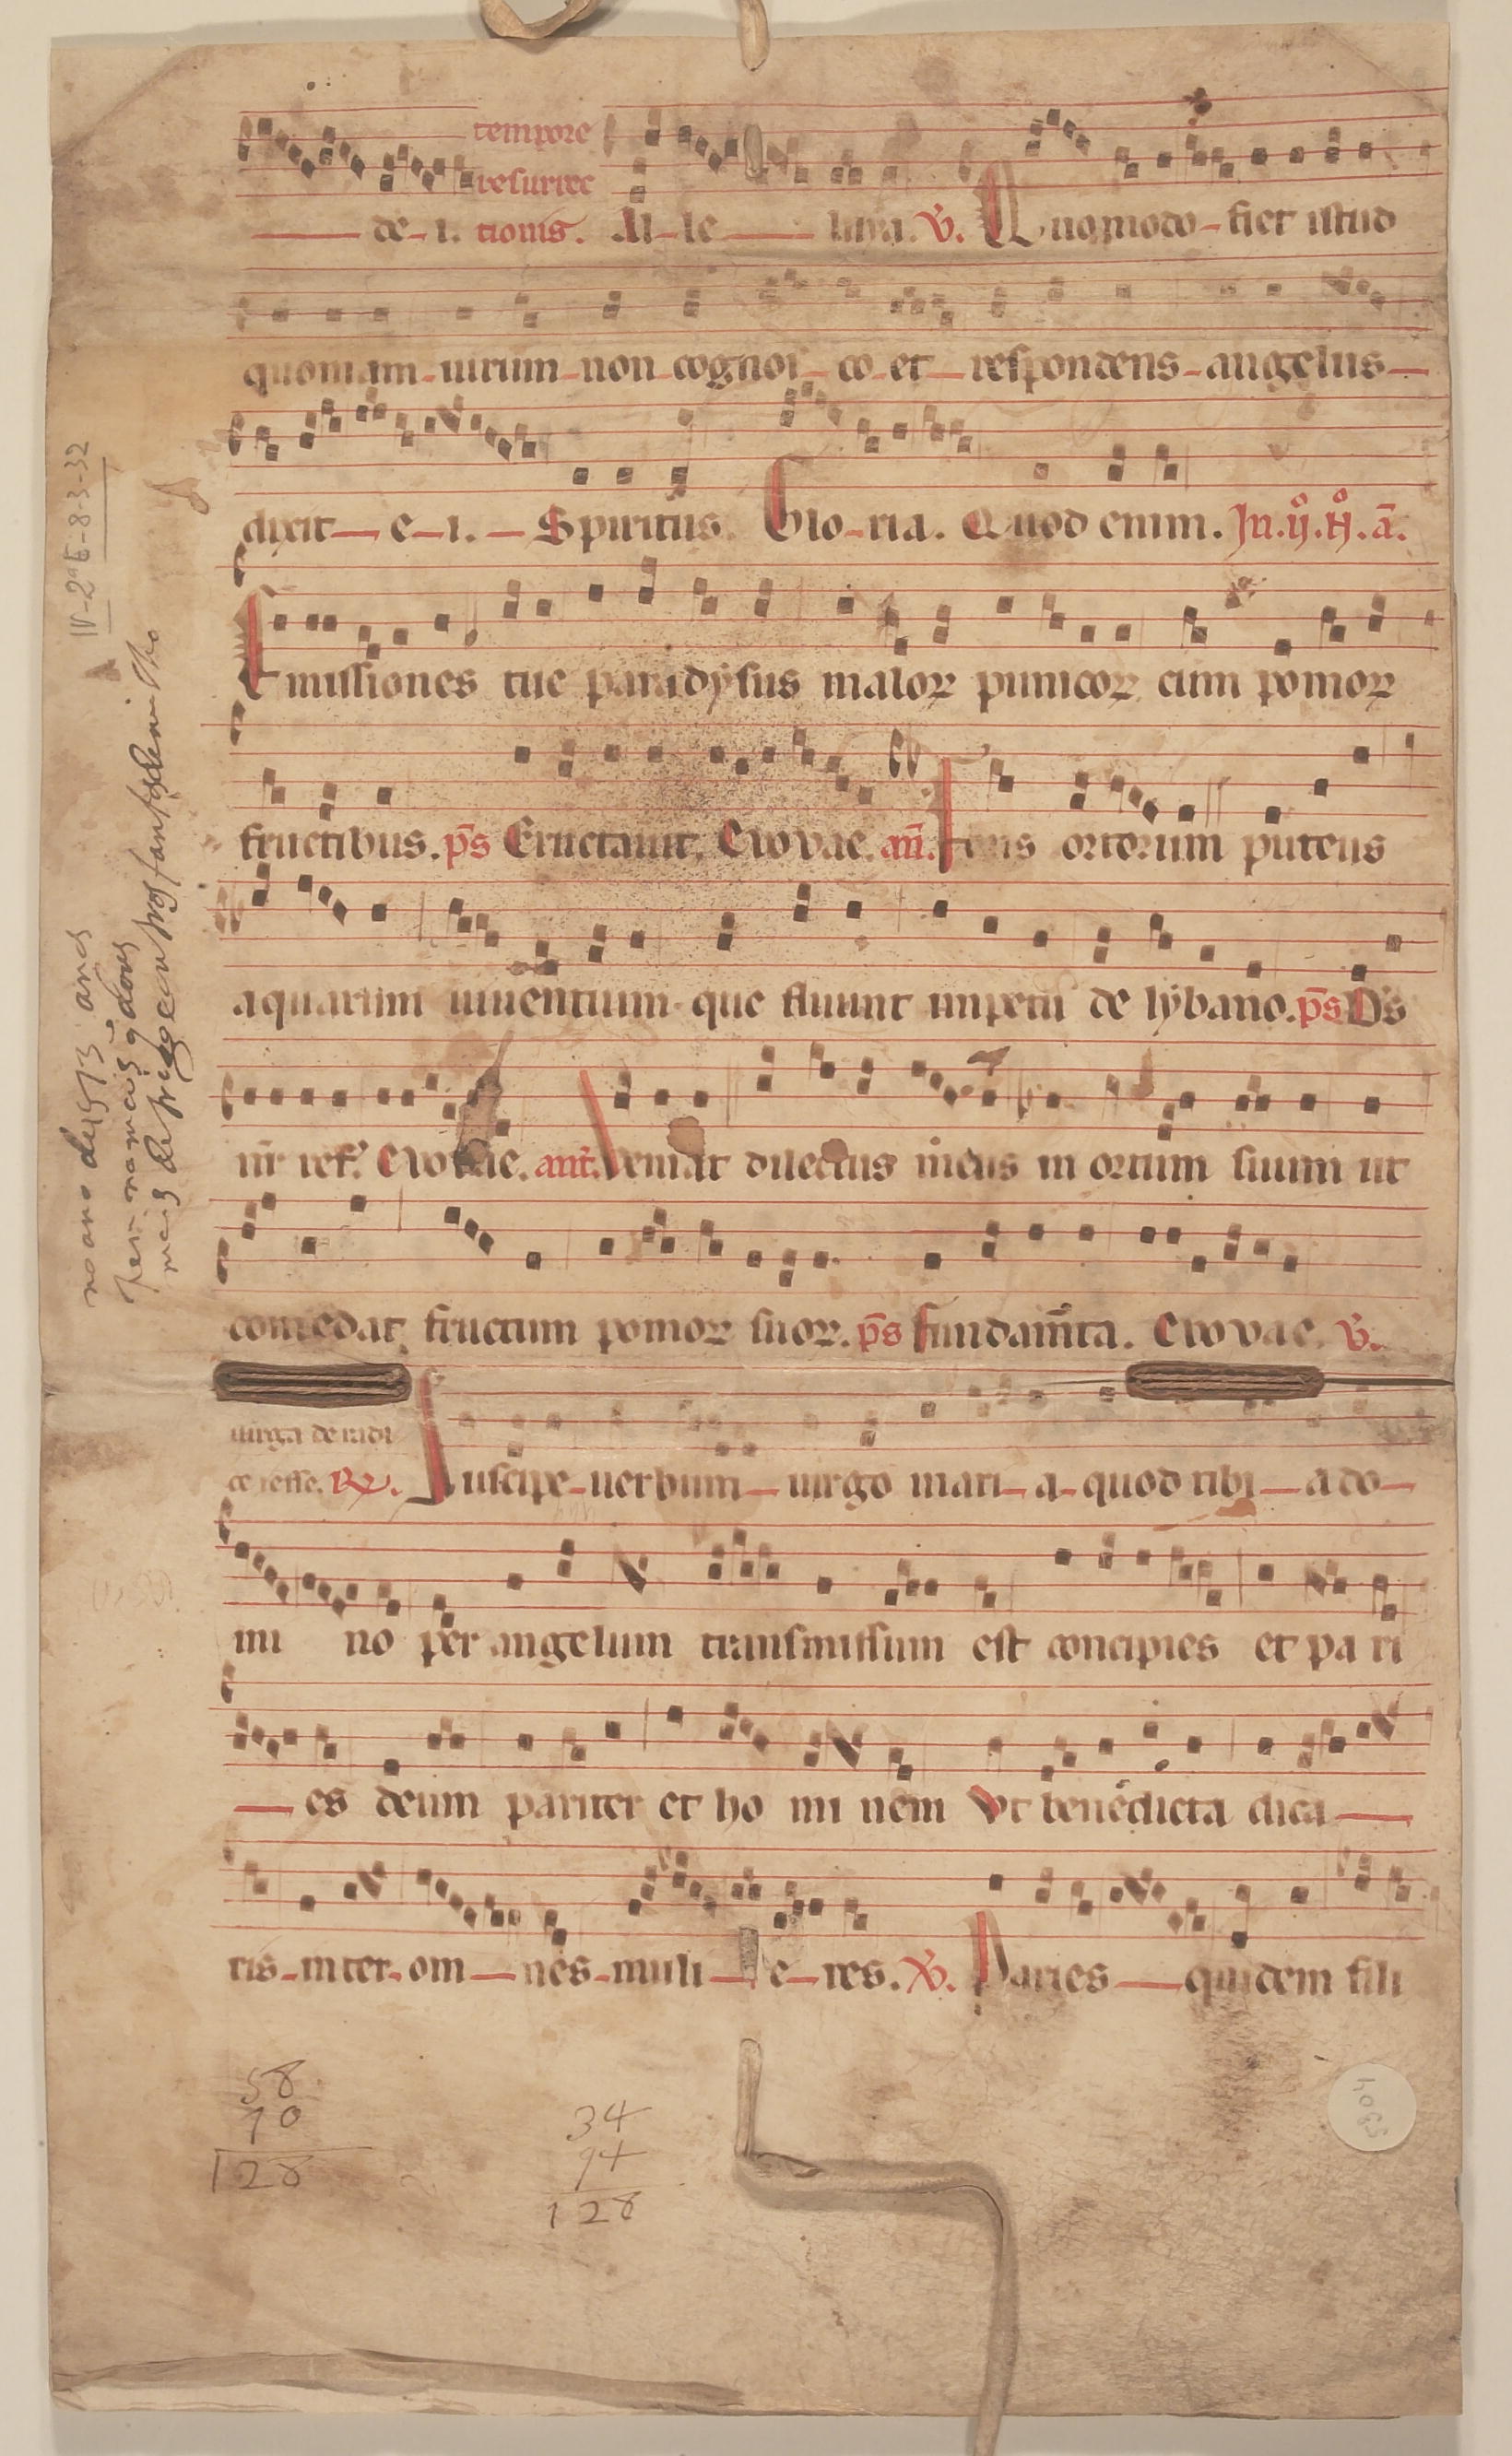 tempore
resurrec
de-i. tionis. Al-le luya. V. Quomodo-fiet istud
quoniam-uirum-non-cognos-co-et-respondens-angelus-
dixit-e-i.-Spiritus. Glo-ria. Quod enim. In.ij.º N.º a.
Emissiones tue paradysus maloꝝ punicoꝝ cum pomoꝝ
fructibus. ps Eructauit. Evovae. añ. Fons ortorum puteus
aquarum uiuentium que fluunt impetu de lybano. ps Ds
nr ref. Evovae. ant. Veniat dilectus meus in ortum suum ut
comedat fructum pomoꝝ suoꝝ. ps fundamta. Evovae. V.
uirga de radi
ce iesse. R. Suscipe-uerbum-uirgo mari-a-quod tibi-a do-
mi no per angelum transmissum est concipies et pa ri
-es deum pariter et ho mi nem Vt benedicta dica-
ris-inter-om-nes-muli-e-res. V. Paries-quidem fili
58
70
128
34
94
128
IV-2ª E-8-3-32